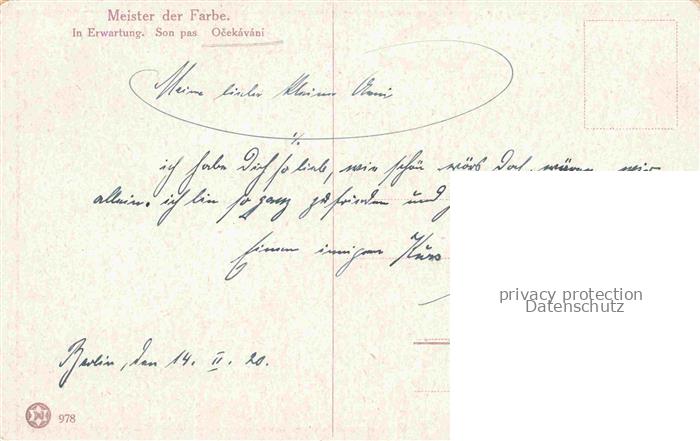 Meister der Farbe.
In Erwartung. Son pas Očekávání
Meine lieber kleiner Anni
ich habe Dich so lieb, wie schön wärs doch, wären wir
allein. ich bin so ganz zufrieden und
Einen innigen Kuss
privacy protection
Datenschutz
Berlin, den 14. II. 20.
978